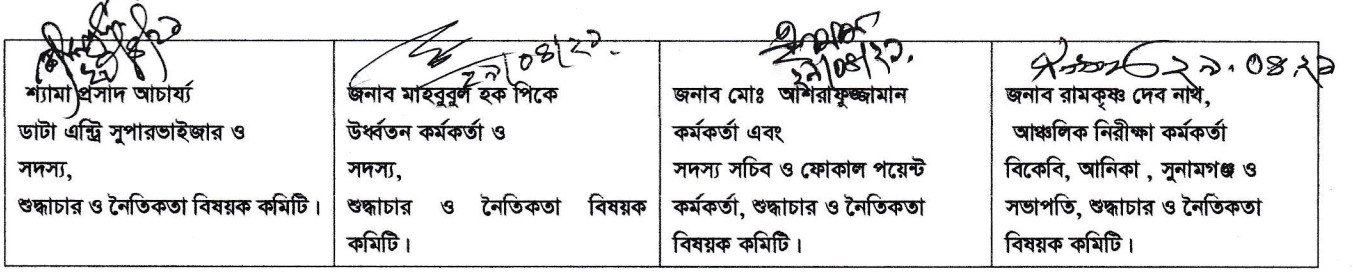 ২৯/০৪/২১.
২৯/০৪/২১.
২৯.০৪.২১
শ্যামা প্রসাদ আচার্য্য
ডাটা এন্ট্রি সুপারভাইজার ও
সদস্য,
শুদ্ধাচার ও নৈতিকতা বিষয়ক কমিটি।
জনাব মাহবুবুল হক পিকে
উর্ধ্বতন কর্মকর্তা ও
সদস্য,
শুদ্ধাচার ও নৈতিকতা বিষয়ক
কমিটি।
জনাব মোঃ আশরাফুজ্জামান
কর্মকর্তা এবং
সদস্য সচিব ও ফোকাল পয়েন্ট
কর্মকর্তা, শুদ্ধাচার ও নৈতিকতা
বিষয়ক কমিটি।
জনাব রামকৃষ্ণ দেব নাথ,
আঞ্চলিক নিরীক্ষা কর্মকর্তা
বিকেবি, আনিকা , সুনামগঞ্জ ও
সভাপতি, শুদ্ধাচার ও নৈতিকতা
বিষয়ক কমিটি।